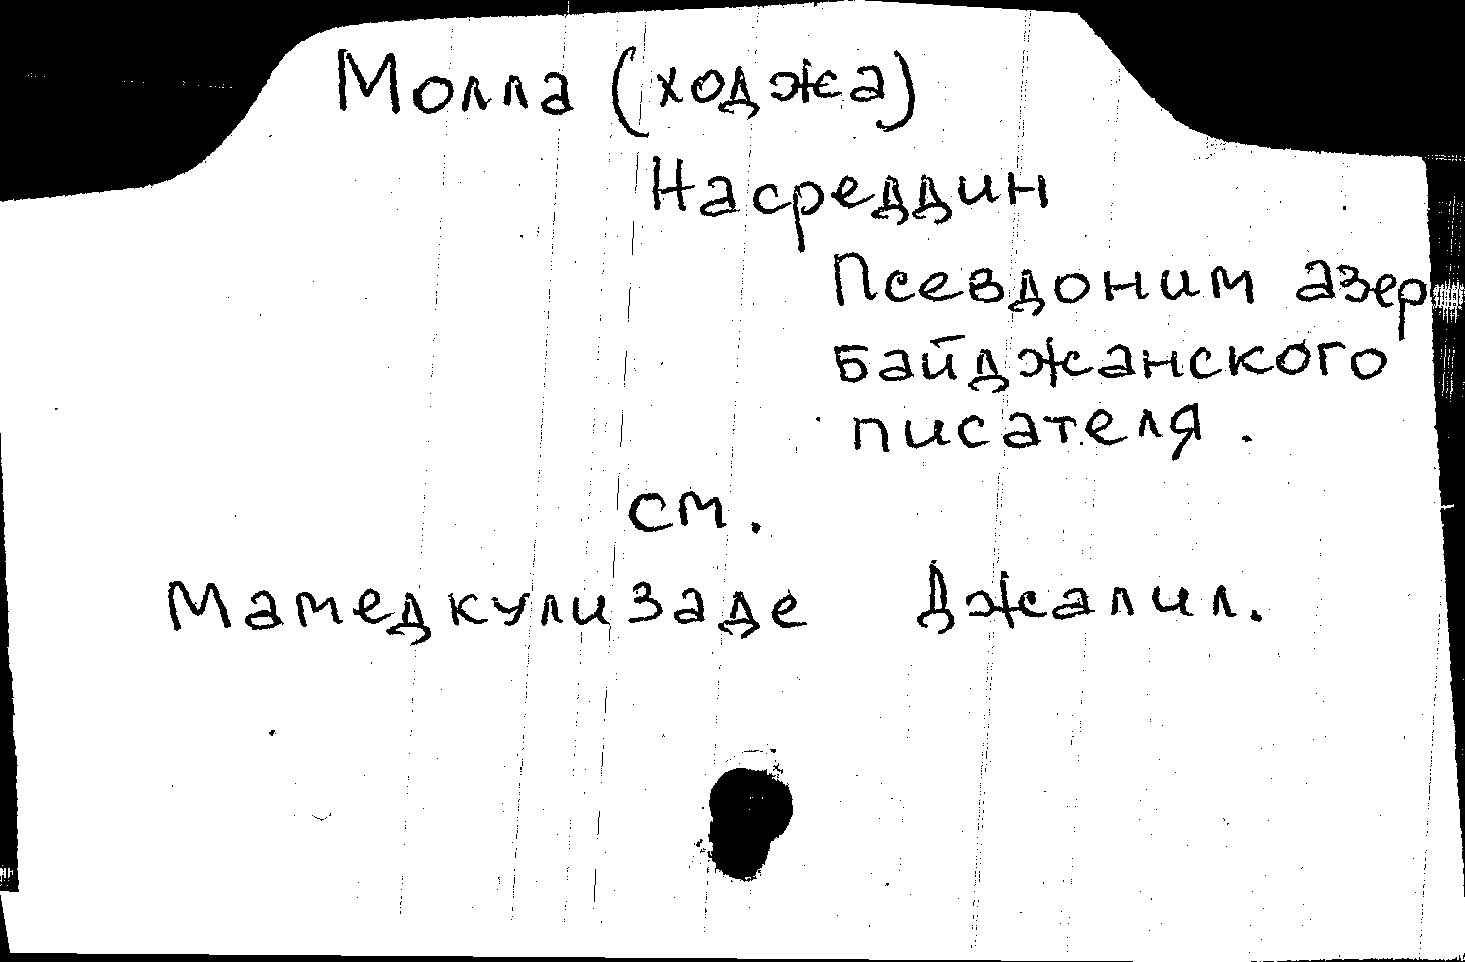 Молла (ходжа)
Насреддин
Псевдоним азер
байджанского
писателя.
см.
Мамедкулизаде Джалил.